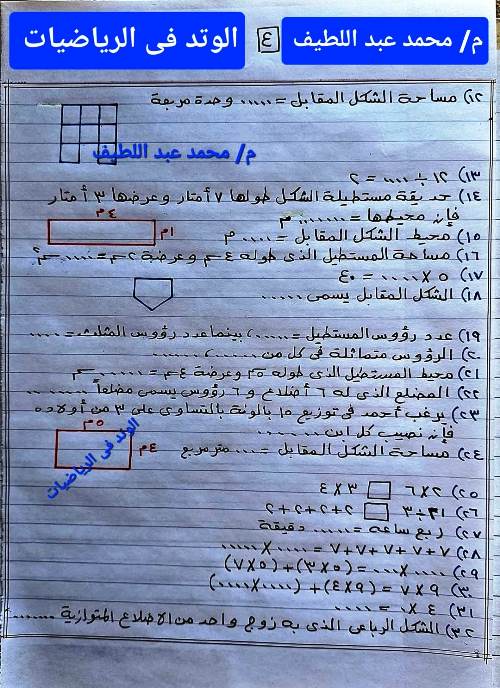 م/ محمد عبد اللطيف ٤ الوتد فى الرياضيات
١٢) مساحة الشكل المقابل = ..... وحدة مربعة
م/ محمد عبد اللطيف
١٣) ١٢ ÷ ..... = ٢
١٤) حديقة مستطيلة الشكل طولها ٧ أمتار وعرضها ٣ أمتار
فإن محيطها = ....... م
٤م
١٥) محيط الشكل المقابل = ..... م
١م
١٦) مساحة المستطيل الذى طوله ٤سم وعرضة ٢سم = ..... سم٢
١٧) ٥ × ..... = ٤٠
١٨) الشكل المقابل يسمى .....
١٩) عدد رؤوس المستطيل = ..... ، بينما عدد رؤوس المثلث = .....
٢٠) الرؤوس متماثلة فى كل من ..... ، .....
٢١) محيط المستطيل الذى طوله ٥سم وعرضة ٤سم = ..... سم
٢٢) المضلع الذى له ٦ أضلاع و ٦ رؤوس يسمى مضلعاً .....
٢٣) يرغب أحمد فى توزيع ١٥ بالونة بالتساوى على ٣ من أولاده
فإن نصيب كل ابن .......
٥م
٢٤) مساحة الشكل المقابل = ..... متر مربع
٤م
الوتد فى الرياضيات
٢٥) ٢ × ٦ □ ٣ × ٤
٢٦) ٢١ ÷ ٣ □ ٢+٢+٢+٢
٢٧) ربع ساعة = ...... دقيقة
٢٨) ٧+٧+٧+٧+٧ = ..... × .....
٢٩) ..... × ..... = (٥×٣) + (٥×٧)
٣٠) ٧ × ٩ = (٩×٤) + (..... × .....)
٣١) ٤ × ١٠ = .....
٣٢) الشكل الرباعى الذى به زوج واحد من الاضلاع المتوازية .....